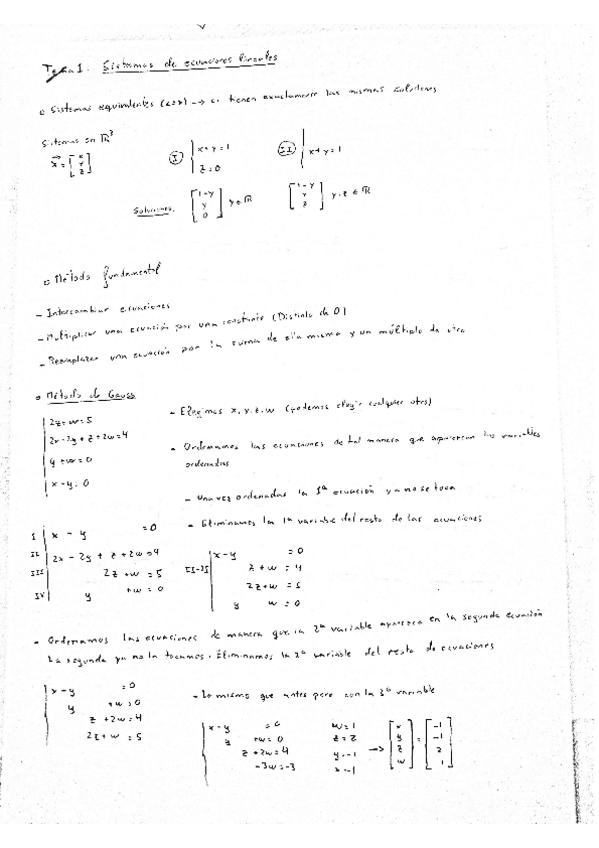 Tema 1. Sistemas de ecuaciones lineales
o Sistemas equivalentes (<=>) -> si tienen exactamente las mismas soluciones
Sistemas en ℝ³
x⃗ = [x y z]
I) x+y=1
z=0
II) x+y=1
Soluciones. [1-y y 0] y∈ℝ
[1-y y z] y,z ∈ ℝ
o Método fundamental
- Intercambiar ecuaciones
- Multiplicar una ecuación por una constante (Distinta de 0)
- Reemplazar una ecuación por la suma de ella misma y un múltiplo de otra
o Método de Gauss
2z+w=5
2x-2y+z+2w=4
y+w=0
x-y=0
- Elegimos x,y,z,w (podemos elegir cualquier otra)
- Ordenamos las ecuaciones de tal manera que aparezcan las variables
ordenadas
- Una vez ordenadas la 1ª ecuación ya no se toca
- Eliminamos la 1ª variable del resto de las ecuaciones
I x - y = 0
II 2x - 2y + z + 2w = 4
III 2z + w = 5
IV y + w = 0
x-y = 0
II-2I z + w = 4
2z+w = 5
y w = 0
- Ordenamos las ecuaciones de manera que la 2ª variable aparezca en la segunda ecuación
La segunda ya no la tocamos. Eliminamos la 2ª variable del resto de ecuaciones
x-y = 0
y +w=0
z +2w=4
2z+w = 5
- Lo mismo que antes pero con la 3ª variable
x-y = 0
y +w=0
z +2w=4
-3w=-3
w=1
z=2
y=-1
x=-1
-> [x y z w] = [-1 -1 2 1]